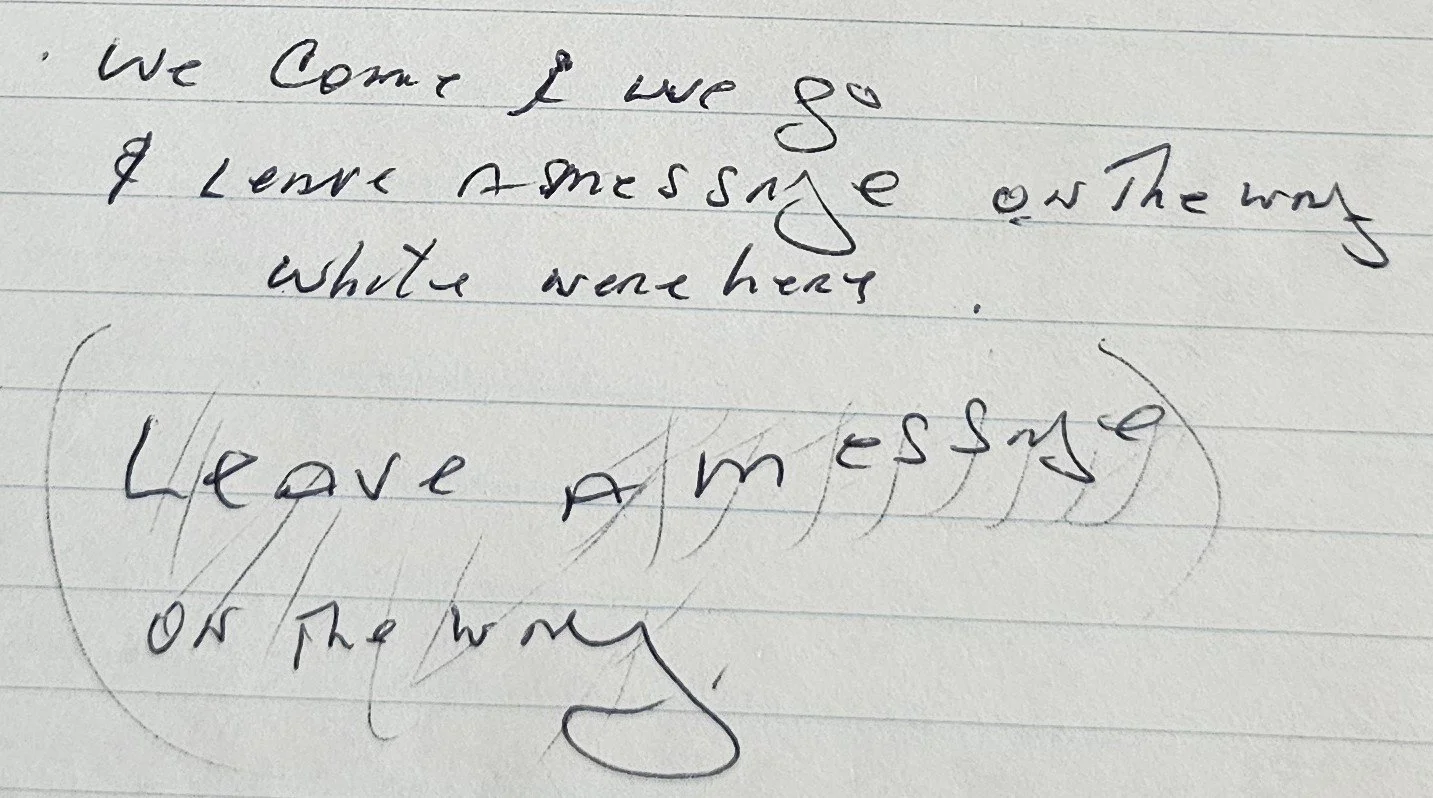 . We Come & we go
& Leave A message on The way
while were here .
(Leave A message)
on The way.